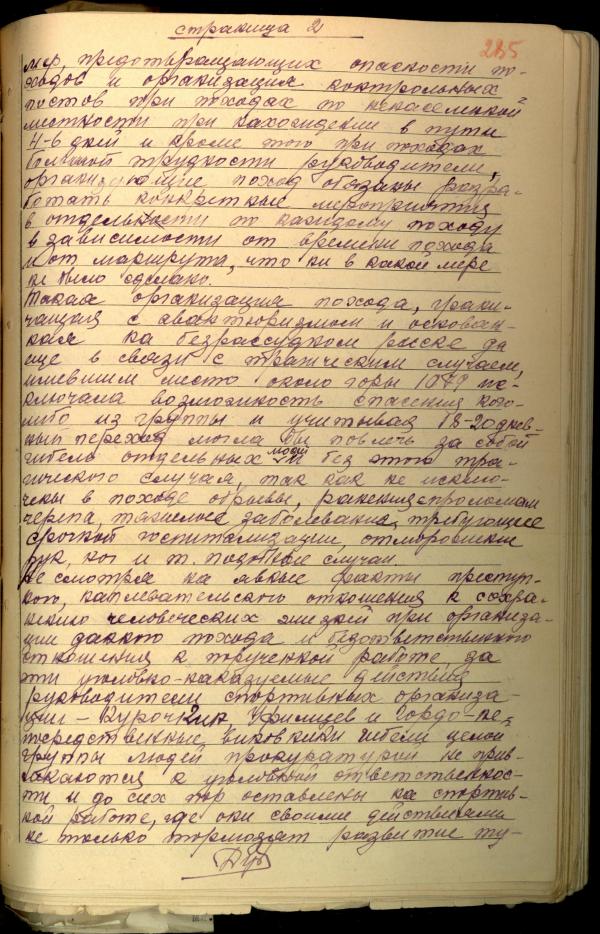 страница 2
285
мер, предотвращающих опасности по-
ходов и организация контрольных
постов при походах по ненаселенной
местности при нахождении в пути
4-6 дней и кроме того при походах
большой трудности руководители,
организующие поход обязаны разра-
ботать конкретные мероприятия
в отдельности по каждому походу
в зависимости от времени похода
и от маршрута, что ни в какой мере
не было сделано.
Такая организация похода, грани-
чащая с авантюризмом и основан-
ная на безрассудном риске да
еще в связи с трагическим случаем,
имевшим место около горы 1079 ис-
ключала возможность спасения кого-
либо из группы и учитывая 18-20 днев-
ный переход могла бы повлечь за собой
гибель отдельных людей и без этого тра-
гического случая, так как не исклю-
чены в походе обрывы, ранения с проломом
черепа, тяжелые заболевания, требующие
срочной госпитализации, отморожение
рук, ног и т. подобные случаи.
Несмотря на явные факты преступ-
ного, наплевательского отношения к сохра-
нению человеческих жизней при организа-
ции данного похода и безответственного
отношения к порученной работе, за
эти уголовно-наказуемые действия
руководители спортивных организа-
ций - Курочкин, Уфимцев и Гордо-не-
посредственные виновники гибели целой
группы людей прокуратурой не прив-
лекаются к уголовной ответственнос-
ти и до сих пор оставлены на спортив-
ной работе, где они своими действиями
не только тормозят развитие ту-